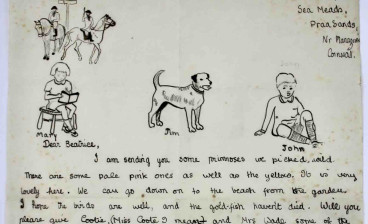 Sea Meads,
Praa Sands,
Nr Marazion
Cornwall.
Mary
Jim
John
Dear Beatrice,
I am sending you some primroses we picked wild.
There are some pale pink ones as well as the yellow. It is very
lovely here. We can go down on to the beach from the garden.
I hope the birds are well, and the gold-fish haven't died. Will you
please give Cootie, (Miss Coote I mean) and Mrs Wade some of the